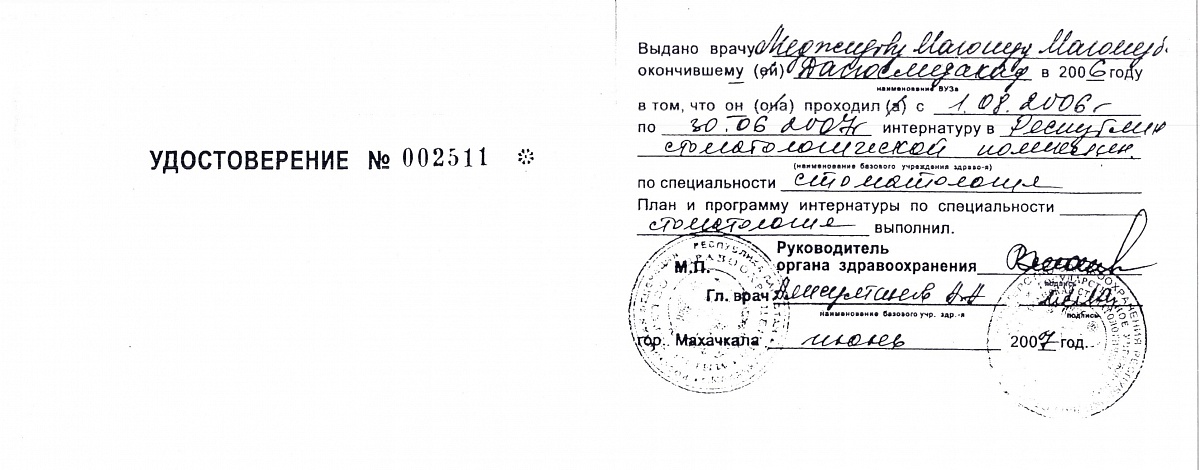 УДОСТОВЕРЕНИЕ № 002511
Выдано врачу Магомеду
окончившему (ей) Дагосмедакад в 2006 году
наименование ВУЗа
в том, что он (она) проходил (а) с 1.08.2006г
по 30.06 2007г интернатуру в Республикан
стоматологической поликлин.
(наименование базового учреждения здраво-я)
по специальности стоматология
План и программу интернатуры по специальности
стоматология выполнил.
Руководитель
М.П. органа здравоохранения
подпись
Гл. врач А.А
наименование базового учр. здр.-я подпись
гор. Махачкала июнь 2007 год.